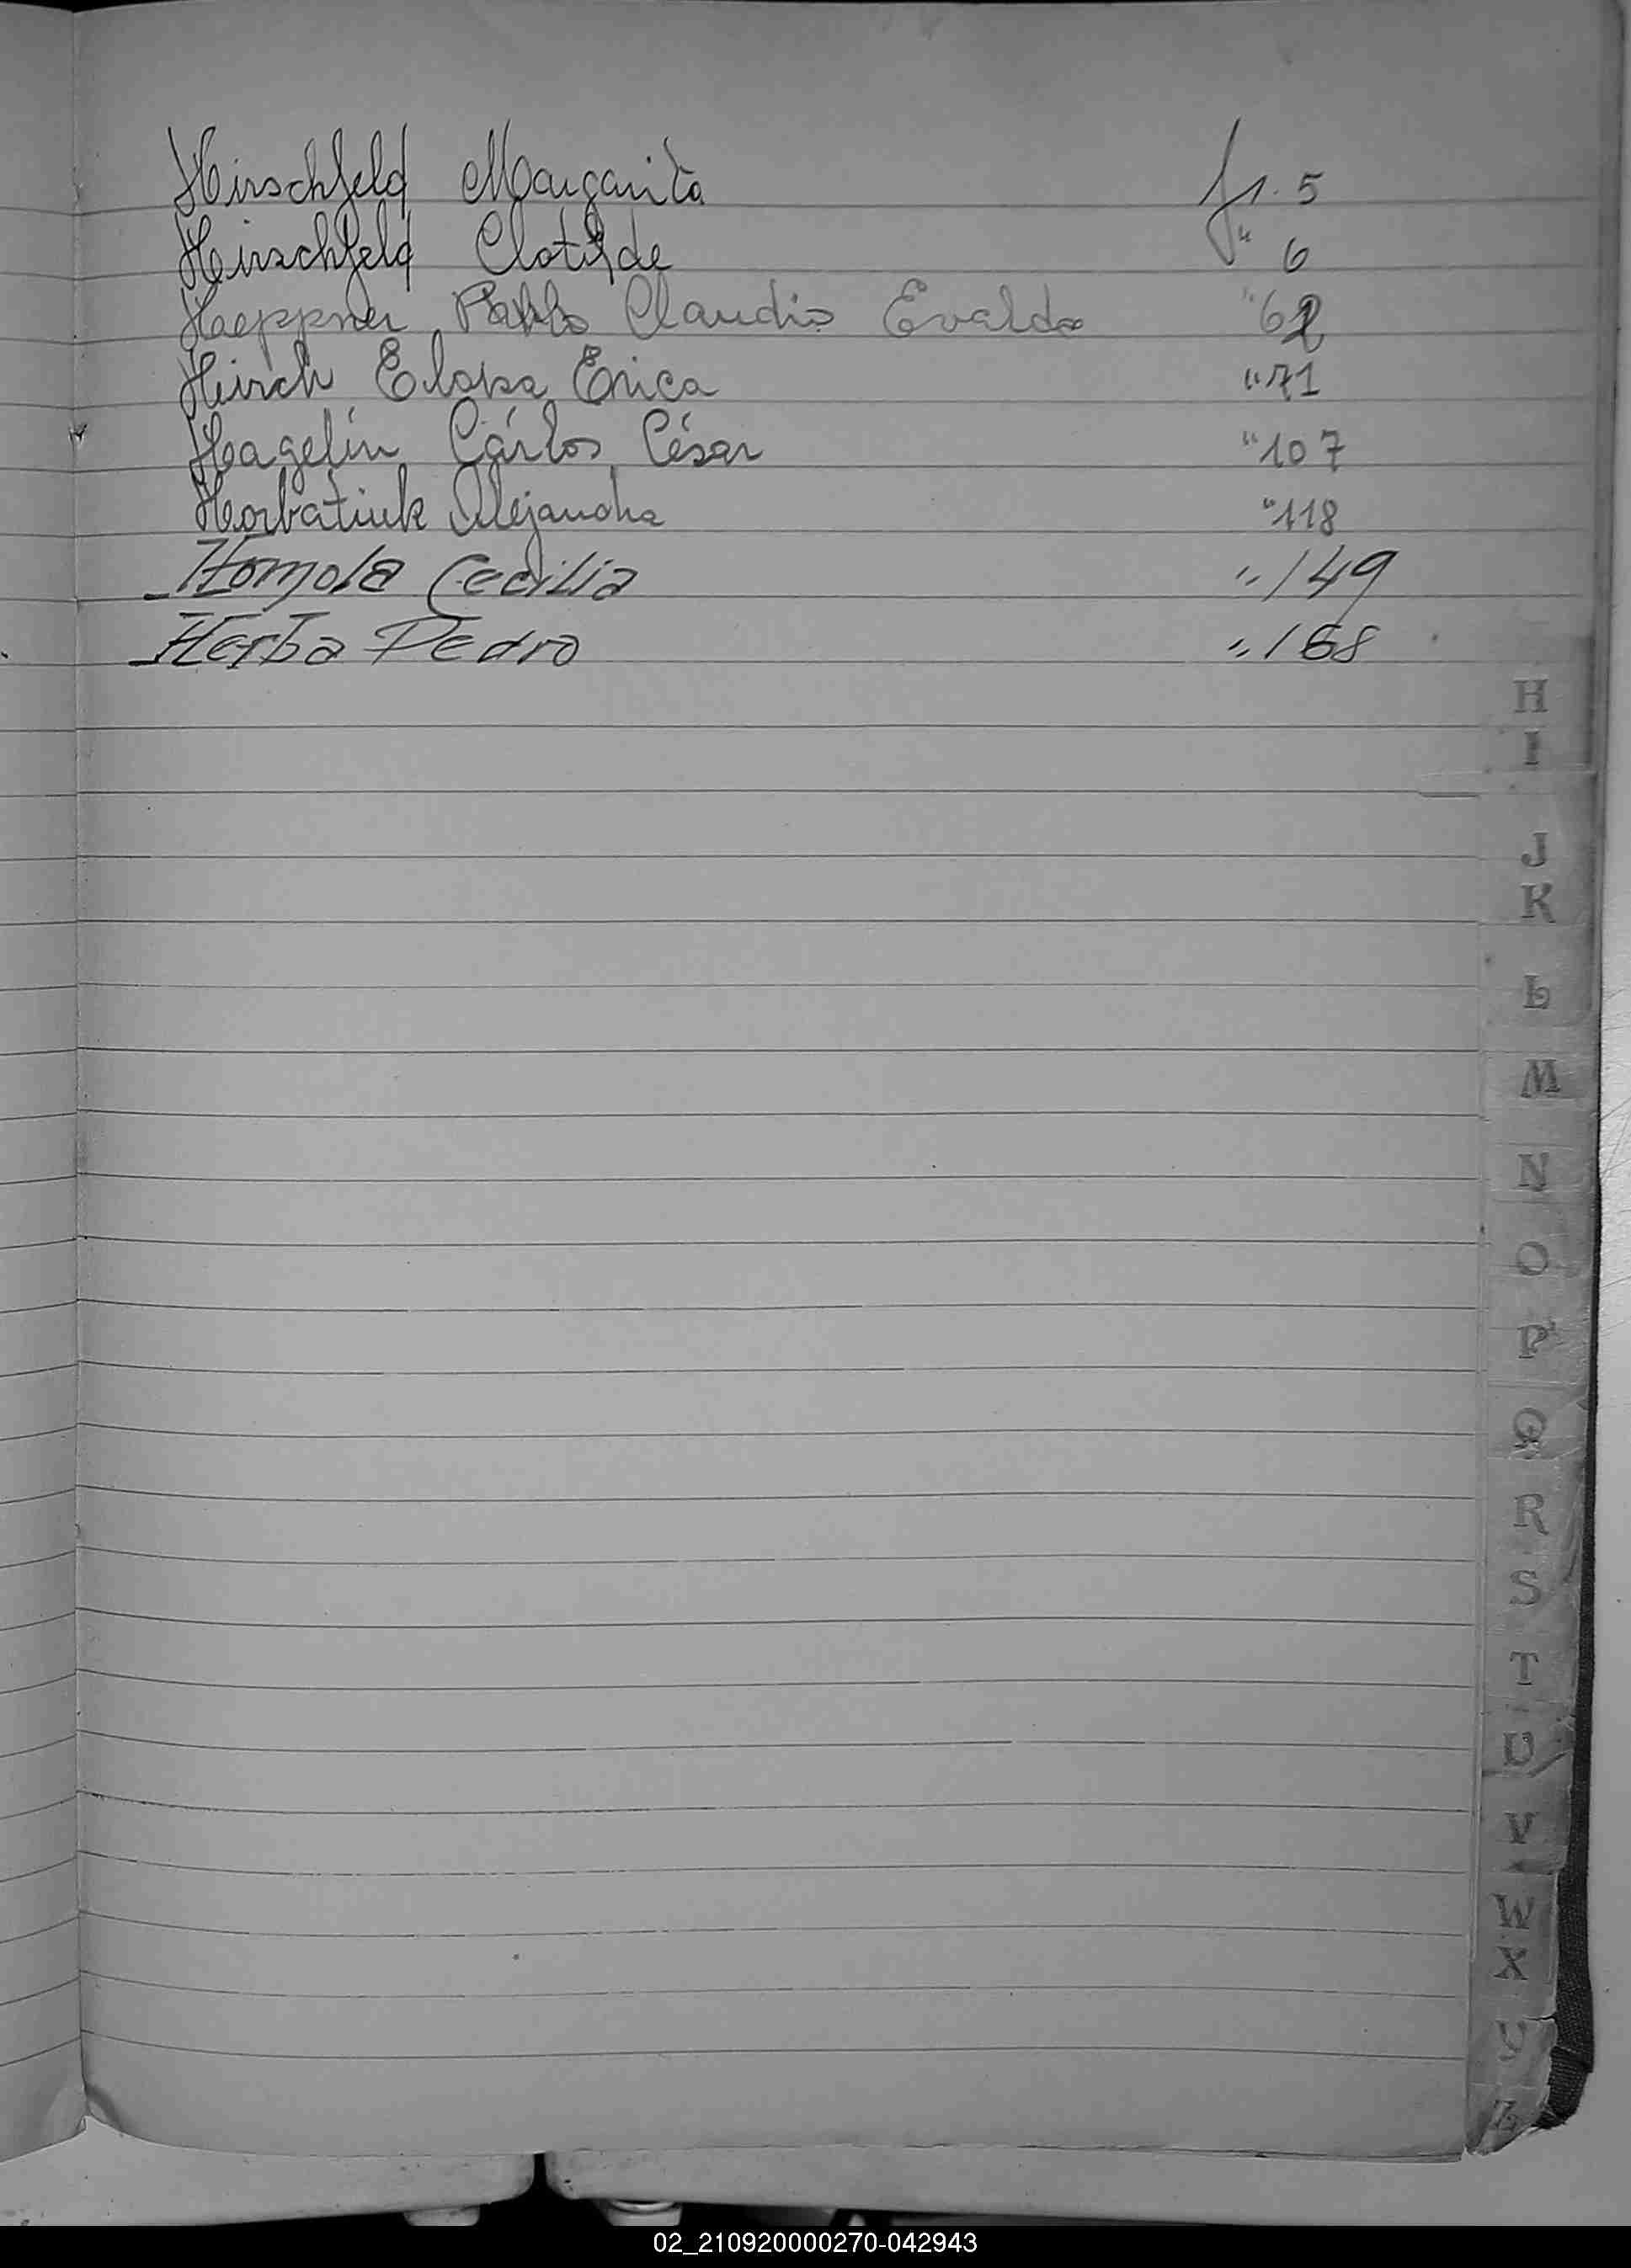 Hirschfeld Margarita f1. 5
Hirschfeld Clotilde " 6
Haeppner Pablo Claudio Evaldo "62
Hirsch Eloisa Erica "71
Hagelin Cárlos César "107
Horbatiuk Alejandra "118
Homola Cecilia " 149
Herba Pedro " 168
H
I
J
K
L
M
N
O
P
Q
R
S
T
U
V
W
X
Y
Z
02_210920000270-042943